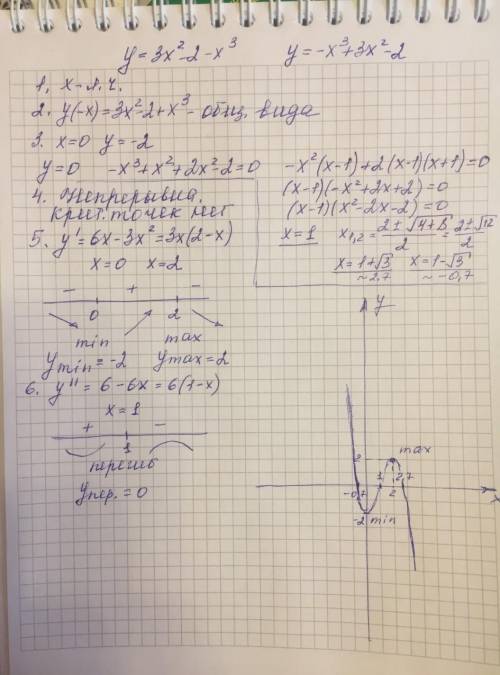 y=3x²-2-x³ y=-x³+3x²-2
1. x-л.ч.
2. y(-x)=3x²-2+x³- общ. вида
3. x=0 y=-2
y=0 -x³+x²+2x²-2=0
-x²(x-1)+2(x-1)(x+1)=0
(x-1)(-x²+2x+2)=0
(x-1)(x²-2x-2)=0
x=1 x₁,₂=(2±√4+8)/2=(2±√12)/2
x=1+√3 x=1-√3
~2.7 ~-0,7
4. Непрерывна.
крит. точек нет
5. y'=6x-3x²=3x(2-x)
x=0 x=2
- + -
0 2
min max
ymin=-2 ymax=2
6. y''=6-6x=6(1-x)
x=1
+ -
1
перегиб
yпер.=0
y
max
2
-0,7 1 2 2,7
x
-2 min